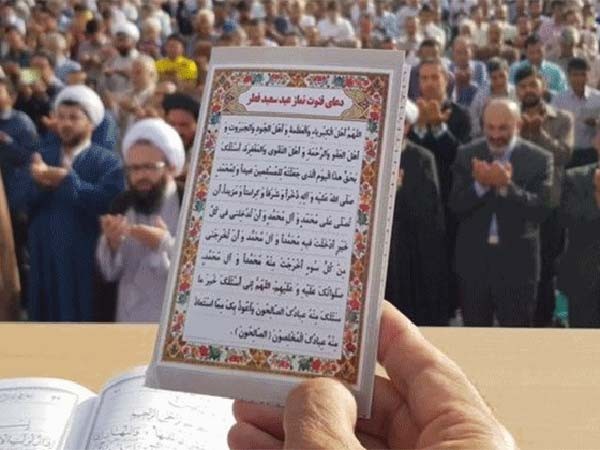 دعای قنوت نماز عید سعید فطر
اَللّهُمَّ اَهْلَ الْکِبْرِیاءِ وَالْعَظَمَةِ وَ اَهْلَ الْجُودِ وَالْجَبَرُوتِ وَ
اَهْلَ الْعَفْوِ وَالرَّحْمَةِ، وَ اَهْلَ التَّقْوی وَالْمَغْفِرَةِ، اَسْئَلُکَ
بِحَقِّ هذَا الْیَوْمِ الَّذی جَعَلْتَهُ لِلْمُسْلِمینَ عیداً وَلِمُحَمَّدٍ
صَلَّی اللهُ عَلَیْهِ وَ آلِهِ ذُخْراً وَ شَرَفاً وَ کَرامَتاً وَ مَزیداً اَن
تُصَلِّیَ عَلی مُحَمَّدٍ وَ آلِ مُحَمَّدٍ وَ اَنْ تُدْخِلَنی فی کُلِّ
خَیْرٍ اَدْخَلْتَ فیهِ مُحَمَّداً وَ آلَ مُحَمَّدٍ وَ اَنْ تُخْرِجَنی
مِنْ کُلِّ سُوءٍ اَخْرَجْتَ مِنْهُ مُحَمَّداً وَ آلَ مُحَمَّدٍ
صَلَواتُکَ عَلَیْهِ وَ عَلَیْهِمْ، اَللّهُمَّ اِنّی اَسْئَلُکَ خَیْرَ ما
سَئَلَکَ مِنْهُ عِبادُکَ الصّالِحُونَ وَاَعُوذُ بِکَ مِمَّا اسْتَعاذَ
مِنْهُ عِبادُکَ الْمُخْلِصُونَ (الصّالِحُونَ).